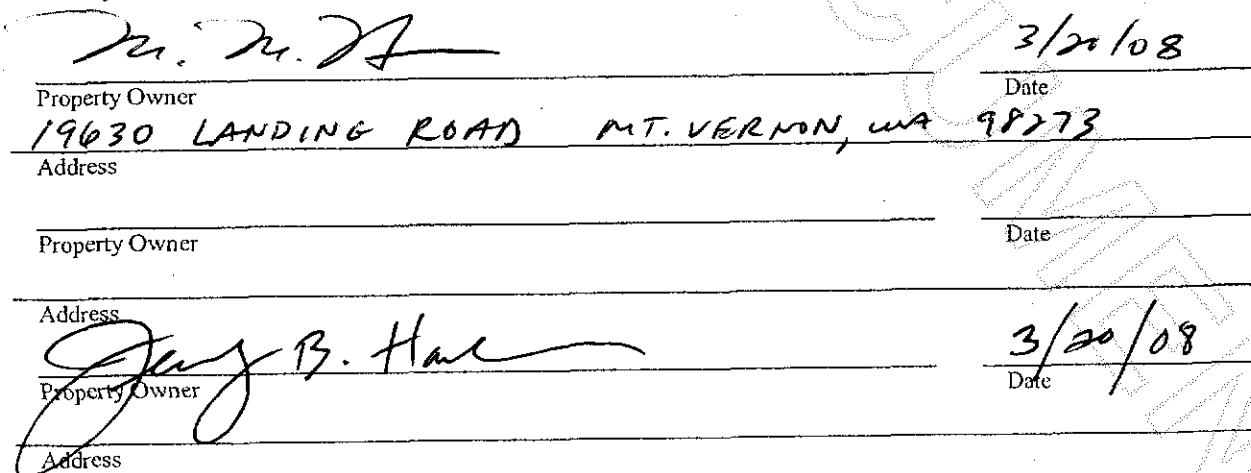 M. M. 3/20/08
Property Owner Date
19630 LANDING ROAD MT. VERNON, WA 98273
Address
Property Owner Date
Address
B. 3/20/08
Property Owner Date
Address